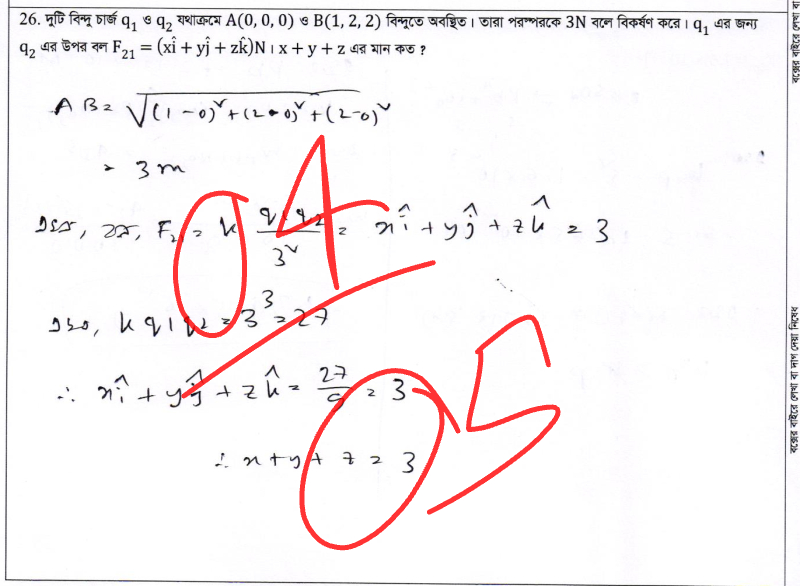 26. দুটি বিন্দু চার্জ q₁ ও q₂ যথাক্রমে A(0, 0, 0) ও B(1, 2, 2) বিন্দুতে অবস্থিত। তারা পরস্পরকে 3N বলে বিকর্ষণ করে। q₁ এর জন্য
q₂ এর উপর বল F₂₁ = (xî + yĵ + zk̂)N। x + y + z এর মান কত ?
AB = √(1-0)² + (2-0)² + (2-0)²
= 3 m
04
F₂₁ = k q₁q₂/3² = xî + yĵ + zk̂ = 3
k q₁q₂ = 3³ = 27
∴ xî + yĵ + zk̂ = 27/9 = 3
05
∴ x + y + z = 3
বক্সের বাইরে লেখা বা দাগ দেয়া নিষেধ